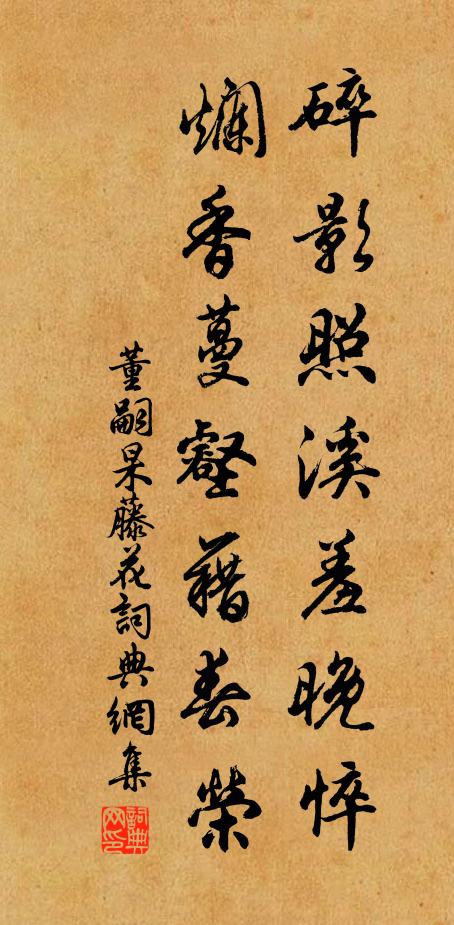 碎影照溪羞晚悴
爛香蔓壑藉春榮
董嗣杲藤花詞典網集
詞典网印